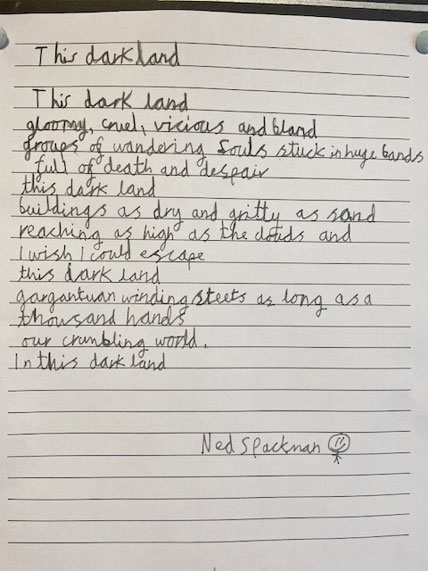 This dark land
This dark land
gloomy, cruel, vicious and bland
groups of wandering Souls stuck in huge bands
full of death and despair
this dark land
buildings as dry and gritty as sand
reaching as high as the clouds and
I wish I could escape
this dark land
gargantuan winding steets as long as a
thousand hands
our crumbling world.
In this dark land
Ned Spackman